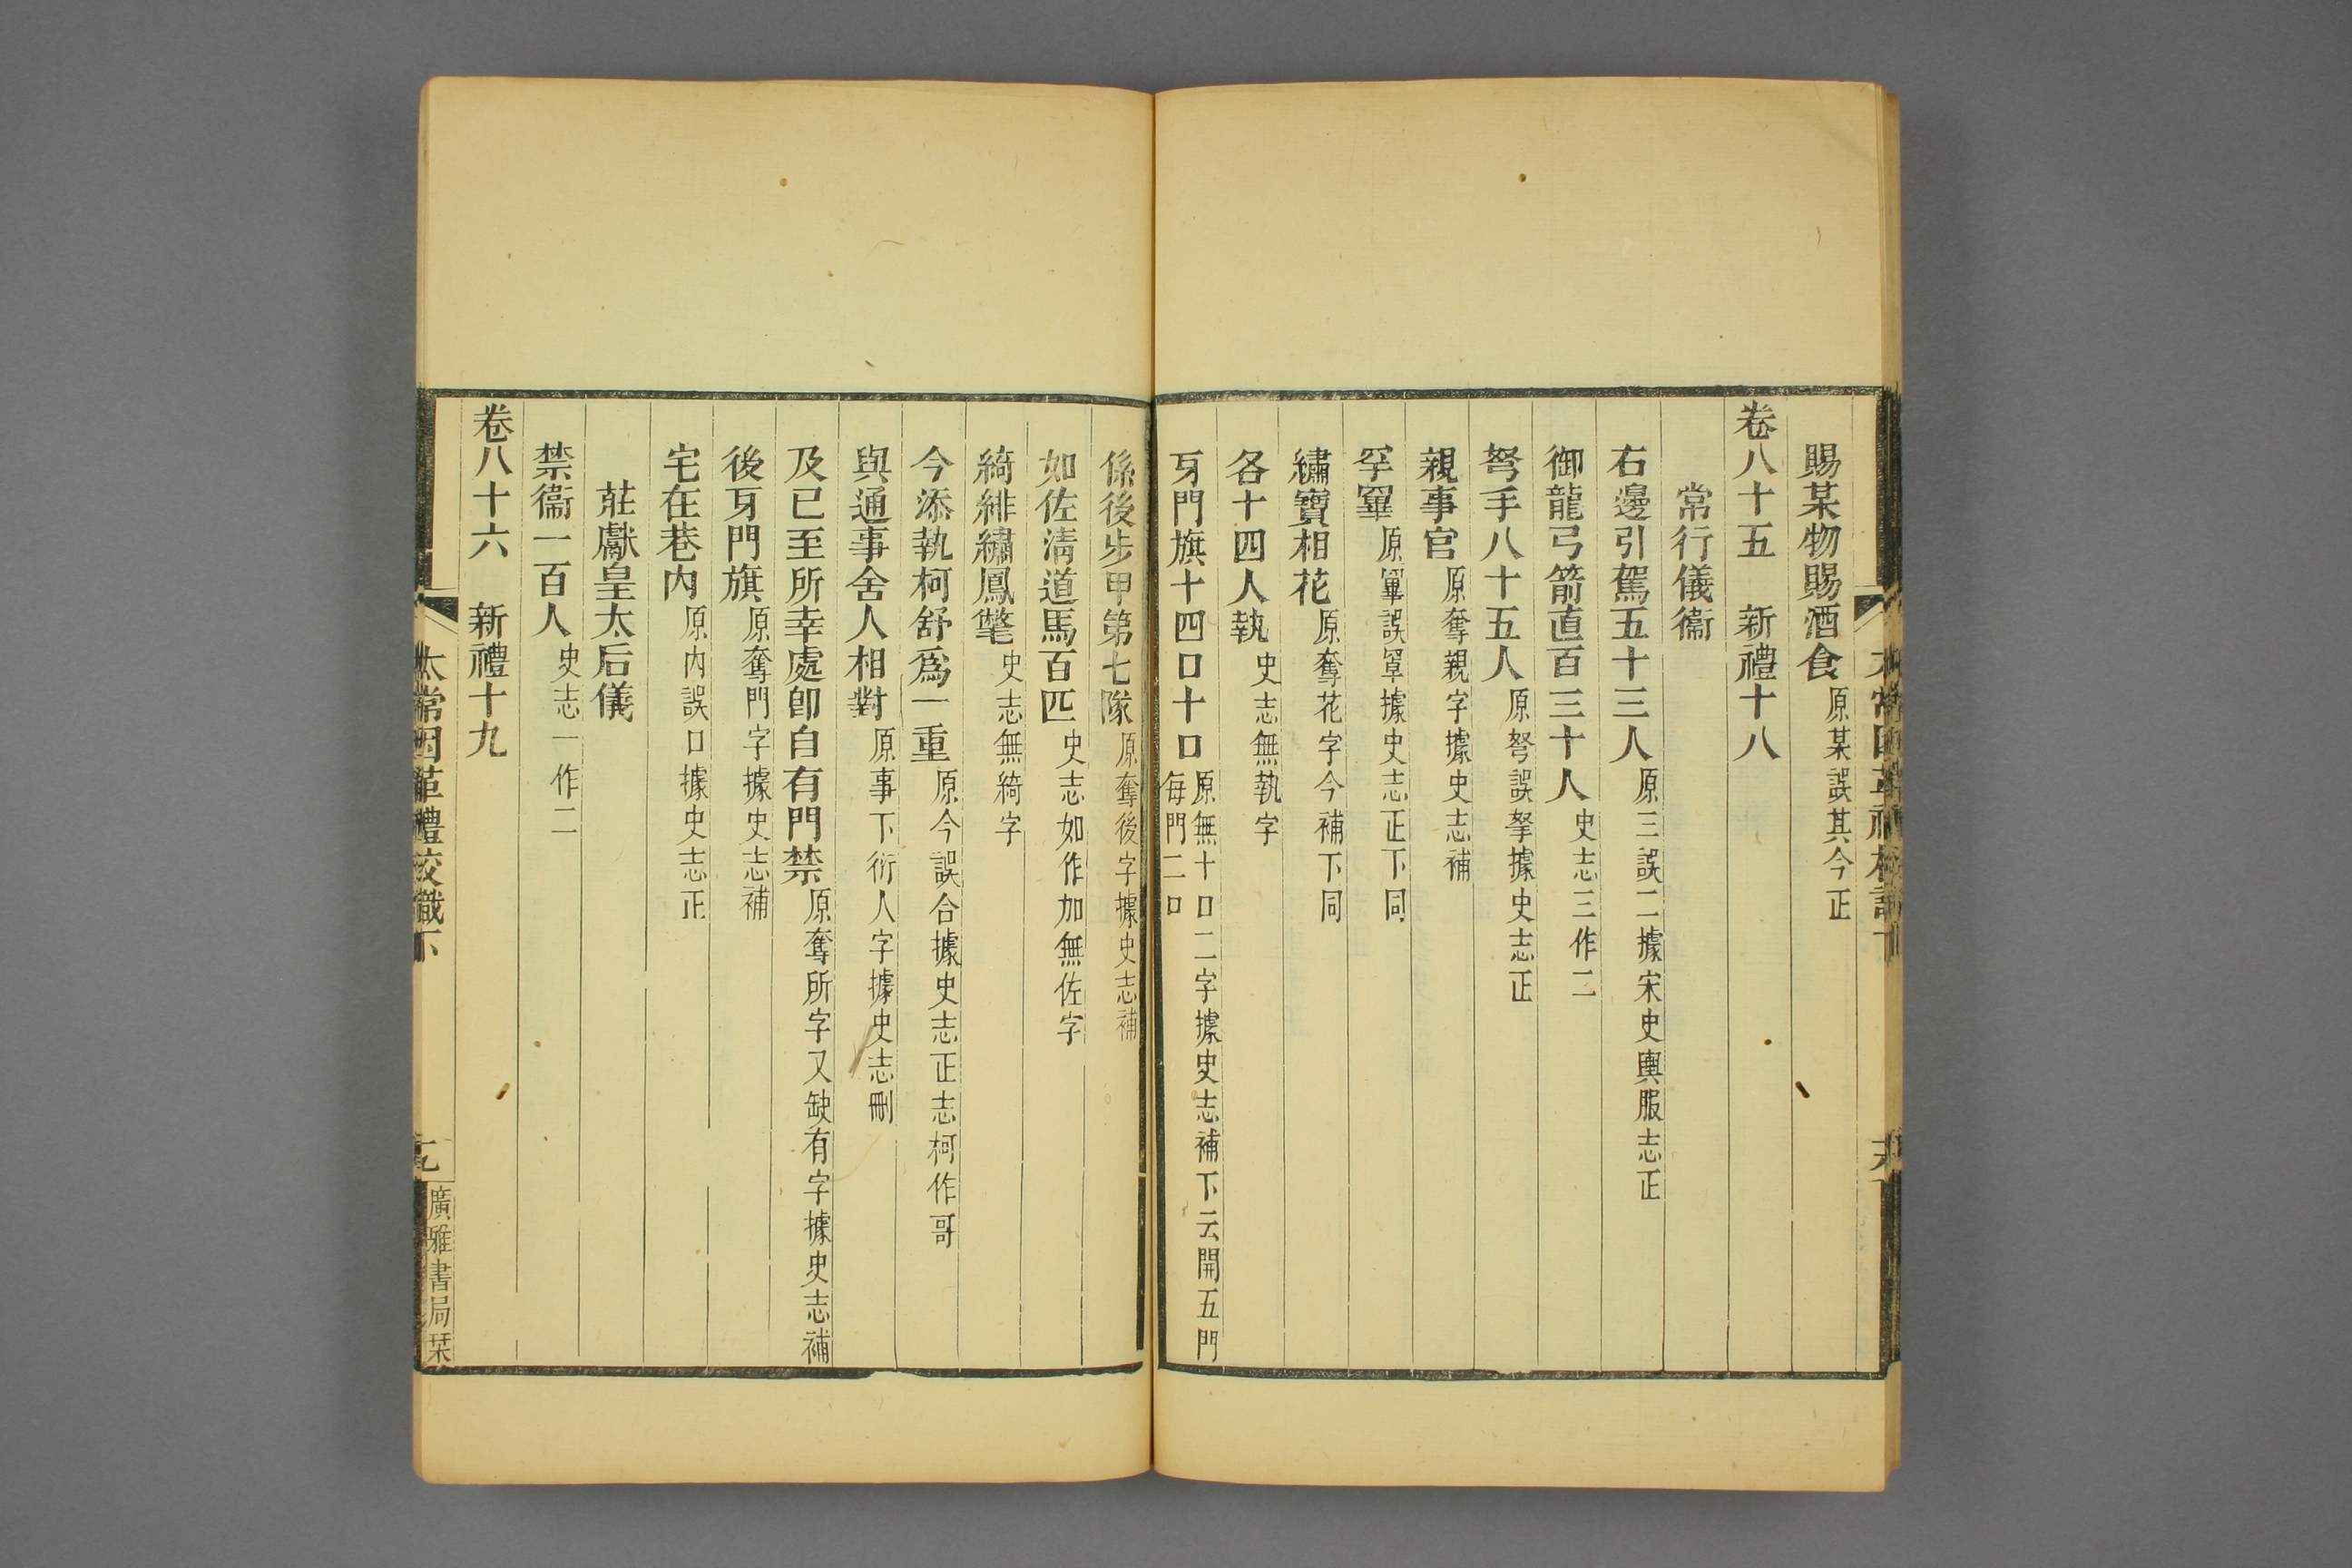 賜某物賜酒食原某誤其今正
卷八十五　新禮十八
常行儀衞
右邊引駕五十三人原三誤二據宋史輿服志正
御龍弓箭直百三十人史志三作二
弩手八十五人原弩誤拏據史志正
親事官原奪親字據史志補
罕罼原罼誤罩據史志正下同
繡寶相花原奪花字今補下同
各十四人執史志無執字
牙門旗十四口十口原無十口二字據史志補下云開五門每門二口
係後步甲第七隊原奪後字據史志補
如佐清道馬百匹史志如作加無佐字
綺緋繡鳳氅史志無綺字
今添執柯舒爲一重原今誤合據史志正志柯作哥
與通事舍人相對原事下衍人字據史志刪
及已至所幸處卽自有門禁原奪所字又缺有字據史志補
後牙門旗原奪門字據史志補
宅在巷內原內誤口據史志正
莊獻皇太后儀
禁衞一百人史志一作二
卷八十六　新禮十九
太常因革禮校識下
廣雅書局栞